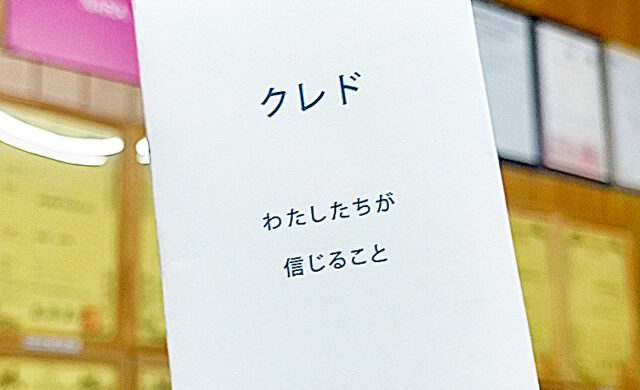 クレド
わたしたちが
信じること